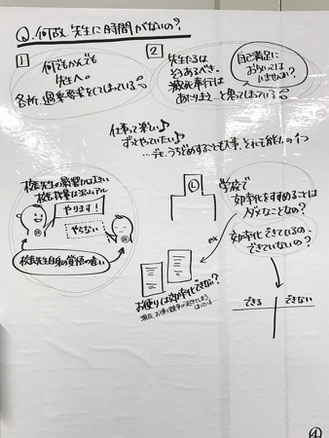 Q.何故、先生に時間がないの？
1
何でもかんでも
先生へ。
各所、過剰要求をしてしまっている
2
先生たるは
こうあるべき。
滅死奉行は
あたりまえ と思ってしまっている
自己満足に
おちいっては
いませんか？
仕事って楽しい♪
ずっとやっていたい♪
…でも、うちどめすることも大事。それも能力の1つ
校長先生の影響力は大きい
校長の言葉は
やります！
やらない
校長先生自身の覚悟の違い
学校で
効率化をすすめることは
ダメなことなの？
効率化できているの、
できていないの？
ex
お便りは効率化できない？
できる
できない
4